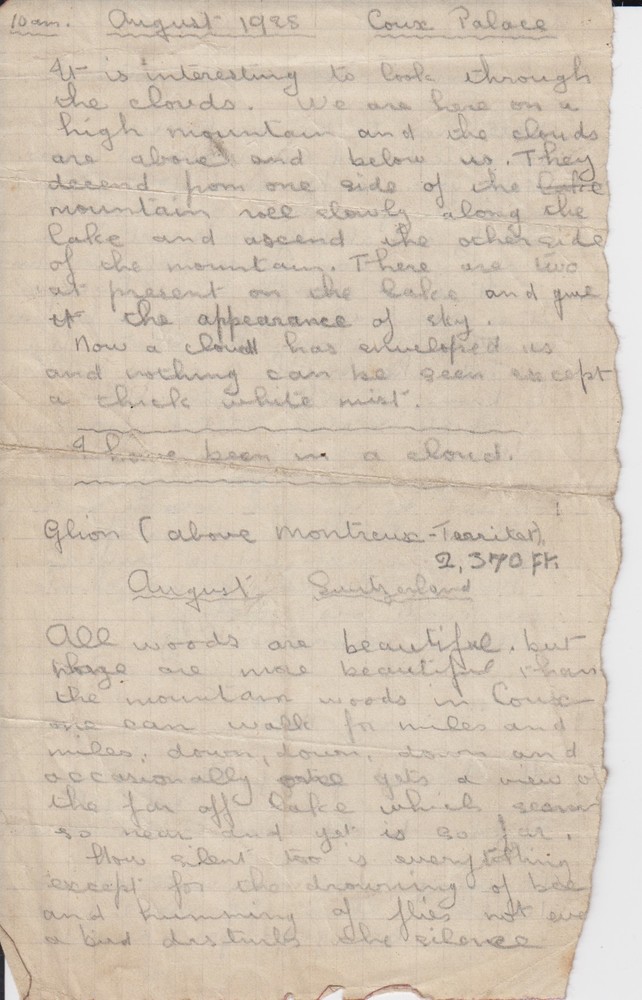 10 am. August 1928 Coux Palace
It is interesting to look through
the clouds. We are here on a
high mountain and the clouds
are above and below us. They
decend from one side of the lake
mountain roll slowly along the
lake and ascend the other side
of the mountain. There are two
at present on the lake and give
it the appearance of sky.
Now a cloud has enveloped us
and nothing can be seen except
a thick white mist.
I have been in a cloud.
Glion (above Montreux-Territet)
2,370 ft.
August Switzerland
All woods are beautiful. but
are more beautiful than
the mountain woods in Coux
one can walk for miles and
miles, down, down, down and
occasionally one gets a view of
the far off lake which seems
so near and yet is so far.
How silent too is everything
except for the drowning of bee
and humming of flies not eve
a bird disturbs the silence